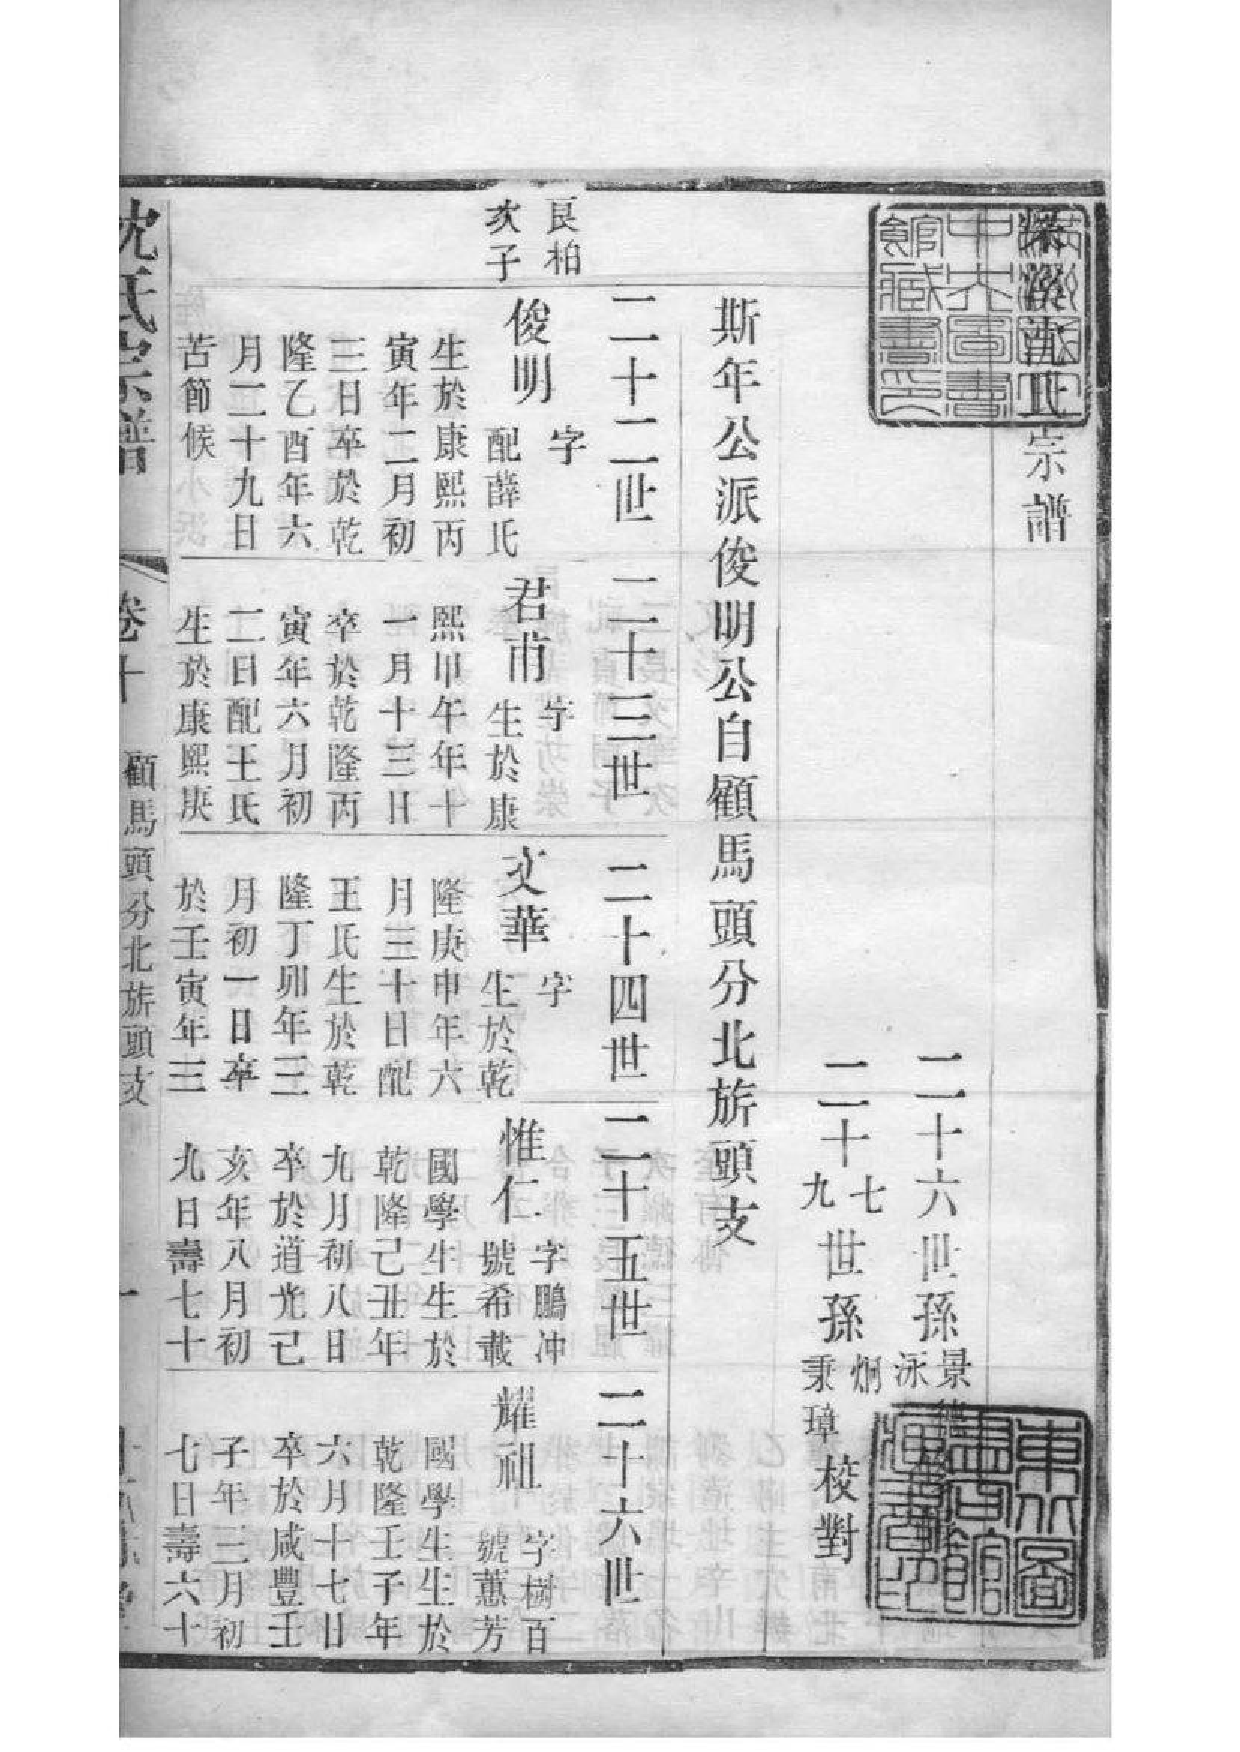 溪沈氏宗譜
二十六世孫景
泳
二十七
九世孫炯
秉璋校對
斯年公派俊明公自顧馬頭分北旂頭支
二十二世
良柏
次子
俊明字
配薛氏
生於康熙丙
寅年二月初
三日卒於乾
隆乙酉年六
月二十九日
苦節候
二十三世
君甫字
生於康
熙甲午年十
一月十三日
卒於乾隆丙
寅年六月初
二日配王氏
生於康熙庚
二十四世
文華字
生於乾
隆庚申年六
月三十日配
王氏生於乾
隆丁卯年三
月初一日卒
於壬寅年三
二十五世
惟仁字鵬冲
號希載
國學生生於
乾隆己丑年
九月初八日
卒於道光己
亥年八月初
九日壽七十
二十六世
耀祖字樹百
號蕙芳
國學生生於
乾隆壬子年
六月十七日
卒於咸豐壬
子年三月初
七日壽六十
沈氏宗譜
卷十
顧馬頭分北旂頭支
一